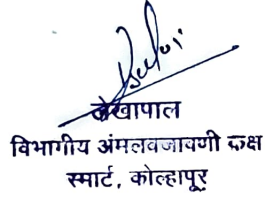 लेखापाल
विभागीय अंमलबजावणी कक्ष
स्मार्ट, कोल्हापूर